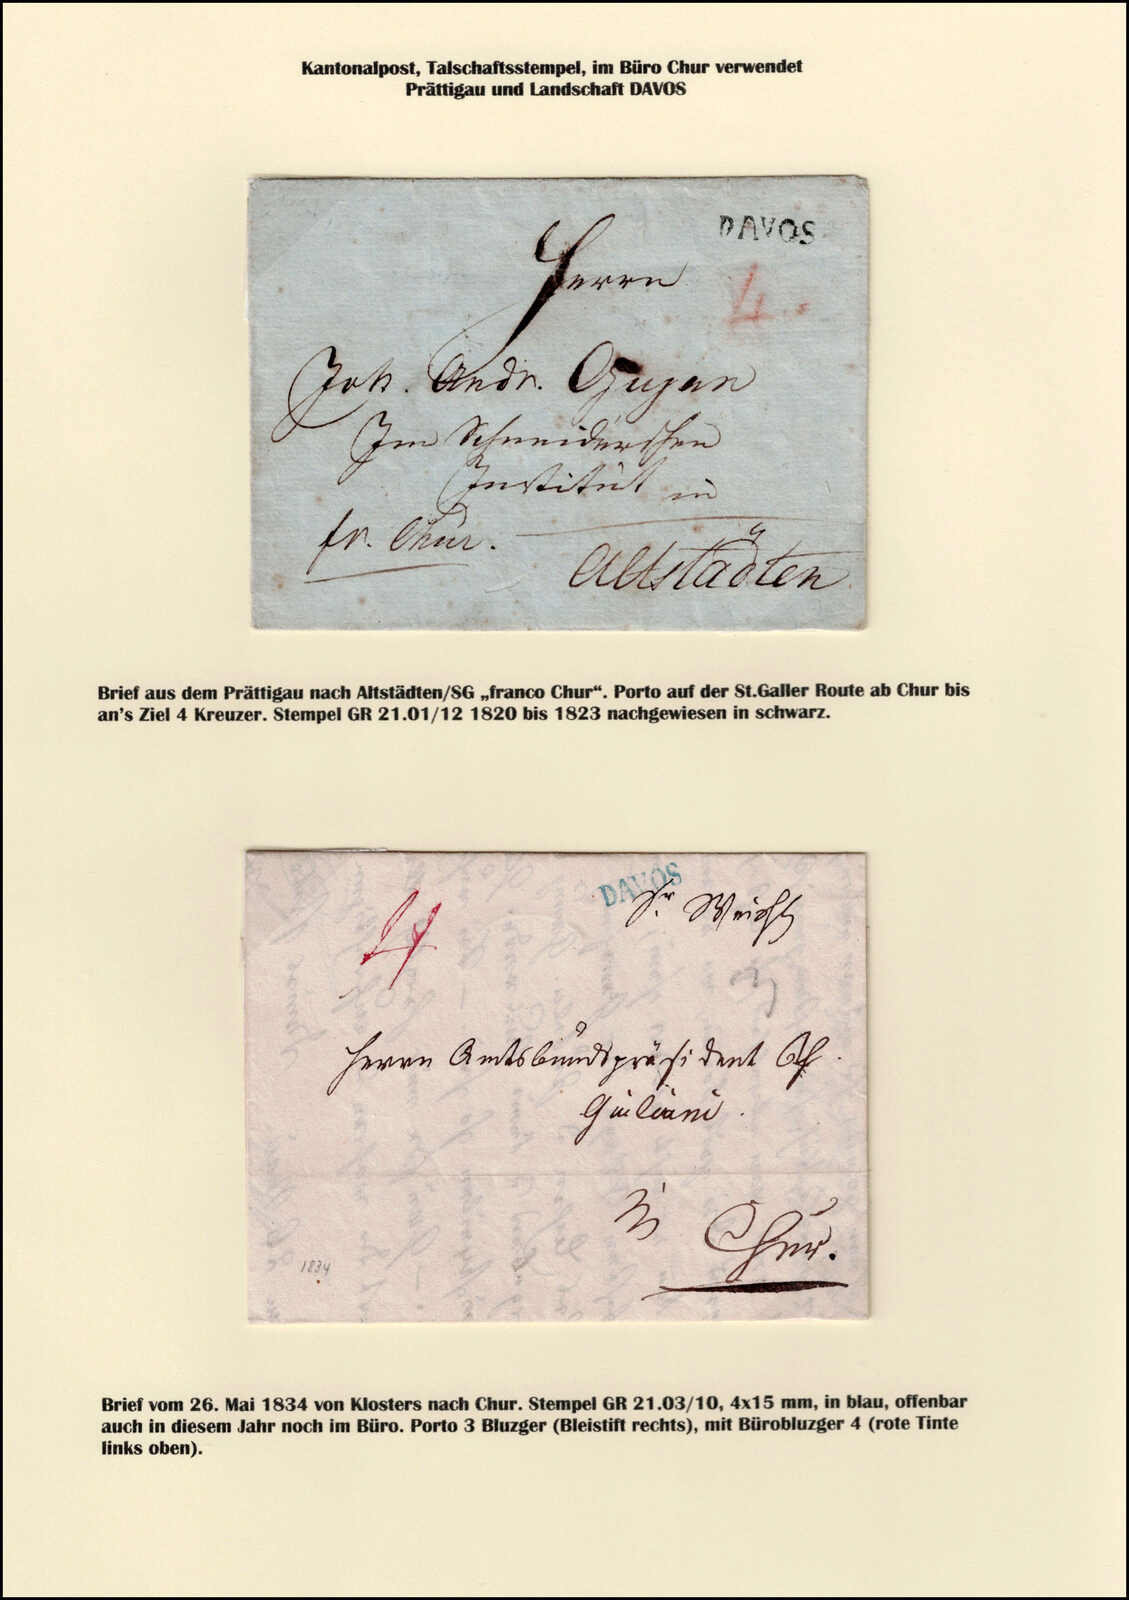 Kantonalpost, Talschaftsstempel, im Büro Chur verwendet
Prättigau und Landschaft DAVOS
DAVOS
Herrn
4.
Joh. Andr. Gujan
Im Schneiderschen
Institut in
fr. Chur.
Altstädten
Brief aus dem Prättigau nach Altstädten/SG „franco Chur“. Porto auf der St.Galler Route ab Chur bis
an's Ziel 4 Kreuzer. Stempel GR 21.01/12 1820 bis 1823 nachgewiesen in schwarz.
DAVOS
4
3
Herrn Amtsbundspräsident
Giuliani.
in
Chur.
1834
Brief vom 26. Mai 1834 von Klosters nach Chur. Stempel GR 21.03/10, 4x15 mm, in blau, offenbar
auch in diesem Jahr noch im Büro. Porto 3 Bluzger (Bleistift rechts), mit Bürobluzger 4 (rote Tinte
links oben).